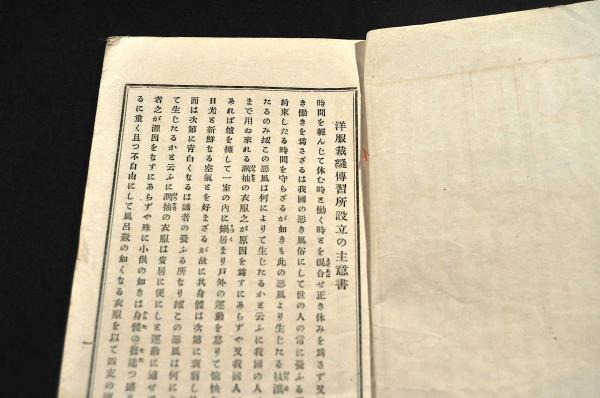 洋服裁縫傳習所設立の主意書
時間を輕んじて休む時と働く時とを混合せ正き休みを爲さず又
き働きを爲さざるは我國の惡き風俗にして世の人の常に憂ふる
約束したる時間を守らざるが如きも此の惡風より生じたる枝
たるのみ抑この惡風は何によりて生じたるかと云ふに我國の人
まで用ゐ來れる濶袖の衣服之が原因を爲すにあらずや又我國人
あれば爐を擁して一室の内に蝸居まり戸外の運動を怠りて愉快
日光と新鮮なる空氣とを好まざるが故に其身體は次第に衰弱し
面は次第に青白くなるは識者の憂ふる所なり抑この惡風は何に
て生じたるかと云ふに濶袖の衣服は安居に便にしと運動に適せ
者之が源因をなすにあらずや殊に小供の如きは身體の發達つ盛り
るに重く且つ不自由にして風呂敷の如くなる衣服を以て四支の
一